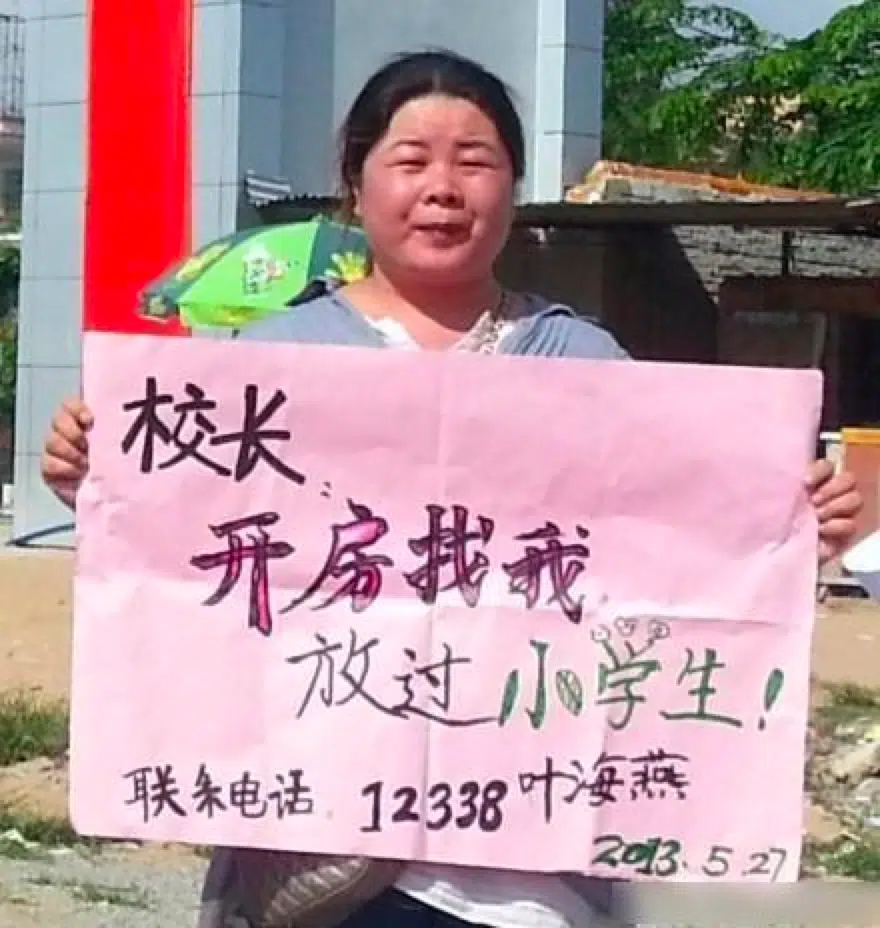 校长
开房找我
放过小学生！
联系电话 12338 叶海燕
2013.5.27